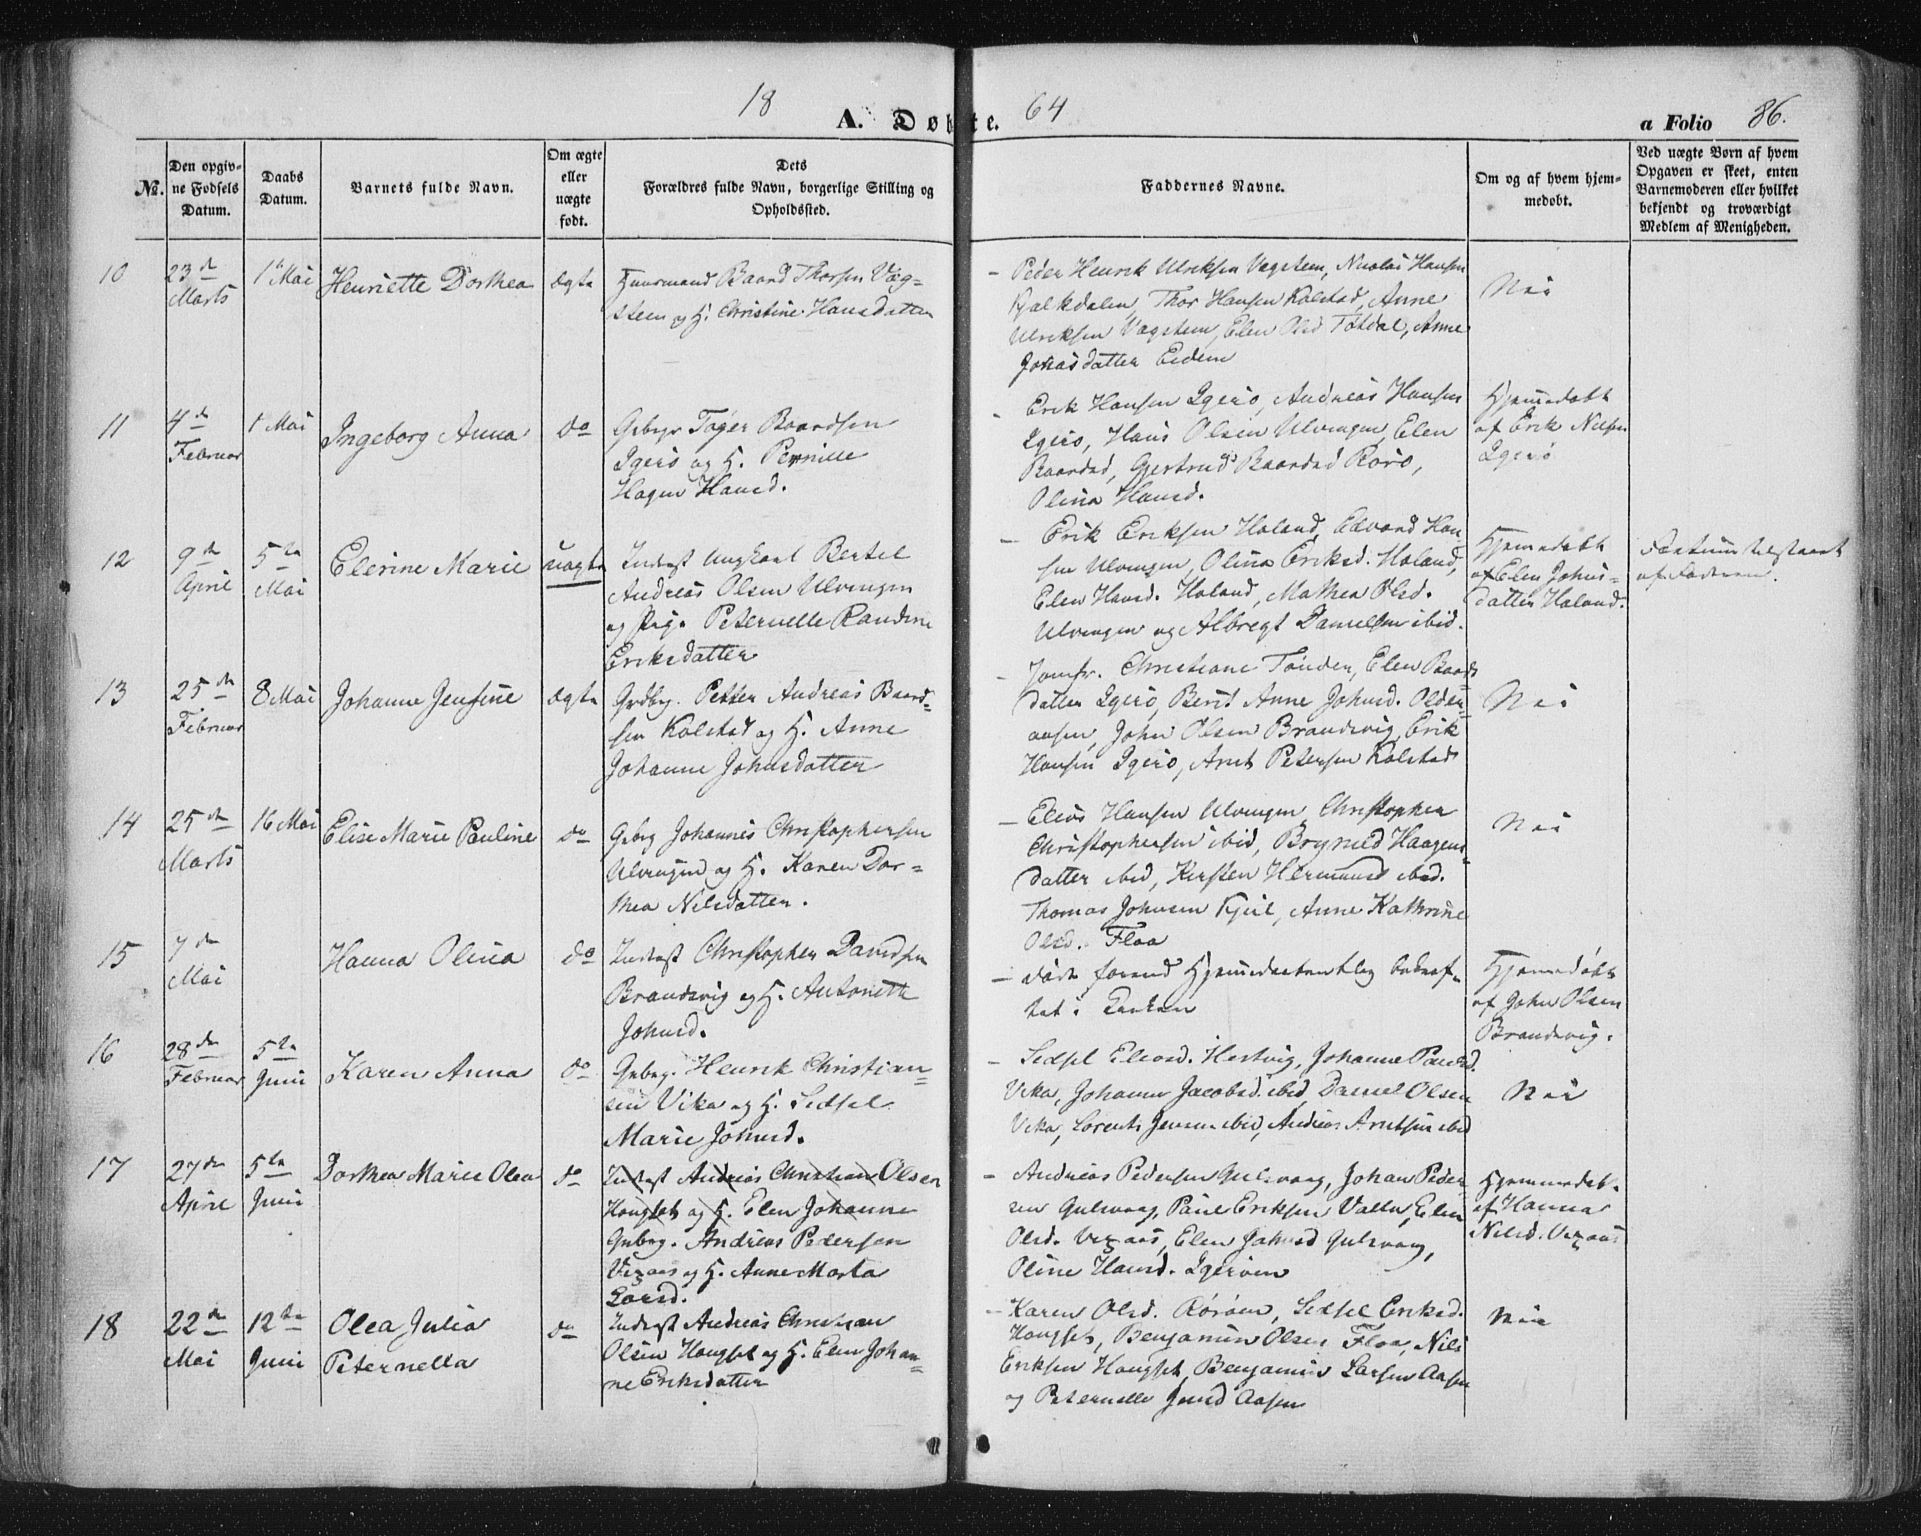 18 64
A. Døbte. a Folio 86.
№.
Den opgiv-
ne Fødsels
Datum.
Daabs
Datum.
Barnets fulde Navn.
Om ægte
eller
uægte
født.
Dets
Forældres fulde Navn, borgerlige Stilling og
Opholdssted.
Faddernes Navne.
Om og af hvem hjem-
medøbt.
Ved uægte Børn af hvem
Opgaven er skeet, enten
Barnemoderen eller hvilket
bekjendt og troværdigt
Medlem af Menigheden.
10
23de
Marts
1 Mai
Henriette Dorthea
ægte
Huusmand Baard Thorsen Væg-
steen og H. Christine Hansdatter
- Peder Henrik Ulriksen Vægsteen, Nicolai Hansen
Thor Hansen Kolstad, Anne
Ulriksen Vægsteen, Elen Olsd Tøtdal, Anne
Jonasdatter Eidem
Nei
11
4de
Februar
1 Mai
Ingeborg Anna
do
Gbgr Tøger Baardsen
Igerø og H. Pernille
Hagen Hansd.
- Erik Hansen Igerø, Andreas Hansen
Igerø, Hans Olsen Ulvingen, Elen
Baardsd, Gjertrud Baardsd Rørø,
Olina Hansd.
Hjemmedøbt
af Erik Nilsen
Igerø
12
9de
April
5te
Mai
Elerine Marie
uægte
Inderst Ungkarl Bertel
Andreas Olsen Ulvingen
og Pige Peternelle Randine
Eriksdatter
- Erik Eriksen Holand, Edvard Han-
sen Ulvingen, Olina Eriksd. Holand,
Elen Hansd. Holand, Mathea Olsd.
Ulvingen og Albregt Danielsen ibid.
Hjemmedøbt
af Elen Johns-
datter Holand.
Factum tilstaaet
af Faderen.
13
25de
Februar
8 Mai
Johanne Jensine
ægte
Grdbg. Petter Andreas Baard-
sen Kolstad og H. Anne
Johanne Johnsdatter
- Jomfr. Christiane Tønder, Elen Baards
datter Igerø, Berit Anne Johnsd. Older-
aasen, John Olsen Brandsvig, Erik
Hansen Igerø, Arnt Petersen Kolstad
Nei
14
25de
Marts
16 Mai
Elise Marie Pauline
do
Gbrg Johannes Christophersen
Ulvingen og H. Karen Dor-
thea Nilsdatter.
- Elias Hansen Ulvingen, Christopher
Christophersen ibid, Bryned Haagens-
datter ibid, Kirsten Hermansd ibid.
Thomas Johnsen Kjeil, Anne Kathrine
Olsd. Floa
Nei
15
7de
Mai
Hanna Olina
do
Inderst Christopher Davidsen
Brandsvig og H. Antonette
Johnsd.
- døde forend Hjemmedaaben blev bekræf-
tet i Kirken
Hjemmedøbt
af John Olsen
Brandsvig.
16
28de
Februar
5te
Juni
Karen Anna
do
Gbrbg. Henrik Christian-
sen Vika og H. Sidsel
Marie Johnsd.
- Sidsel Eliasd. Hestvig, Johanne Paulsd.
Vika, Johanne Jacobsd. ibid, Daniel Olsen
Vika, Lorents Jensen ibid, Andreas Arntsen ibid
Nei
17
27de
April
5te
Juni
Dorthea Marie Olea
do
Inderst Andreas Christian Olsen
Hougset og H. Elen Johanne
Gbrbg. Andreas Pedersen
Vizaas og H. Anne Marta
Larsd.
- Andreas Pedersen Gulsvaag, Johan Peder-
sen Gulsvaag, Paul Eriksen Valen, Elen
Olsd. Vizaas, Elen Johnsd Gulsvaag,
Oline Hansd. Igerøen
Hjemmedøbt
af Hanna
Nilsd. Vizaas
18
22de
Mai
12te
Juni
Olea Julia
Peternella
do
Inderst Andreas Christian
Olsen Hougset og H. Elen Johan-
ne Eriksdatter
- Karen Olsd. Rørøen, Sidsel Eriksd.
Hougset, Benjamin Olsen Floa, Nils
Eriksen Hougset, Benjamin Larsen Aasen
og Peternelle Jensd Aasen
Nei